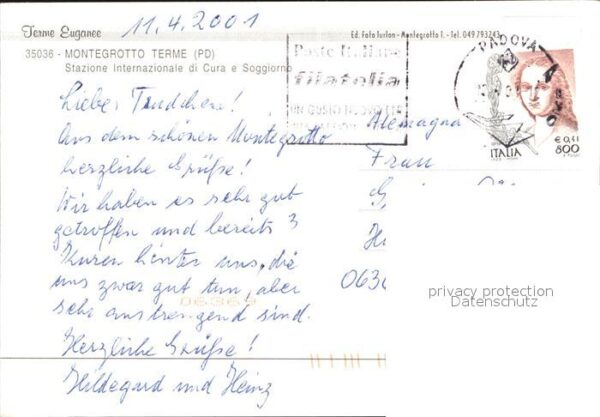 11.4.2001
Terme Euganee
Ed. Foto Turlon - Montegrotto T. - Tel. 049 793243
35036 - MONTEGROTTO TERME (PD)
Stazione Internazionale di Cura e Soggiorno
Poste Italiane
filatelia
UN GUSTO
PADOVA
€ 0,41
ITALIA
800
Liebes Trudchen!
Aus dem schönen Montegrotto
herzliche Grüße!
Wir haben es sehr gut
getroffen und bereits 3
Kuren hinter uns, die
uns zwar gut tun, aber
sehr anstrengend sind.
Herzliche Grüße!
Hildegard und Heinz
Alemagna
Frau
063
06369
privacy protection
Datenschutz